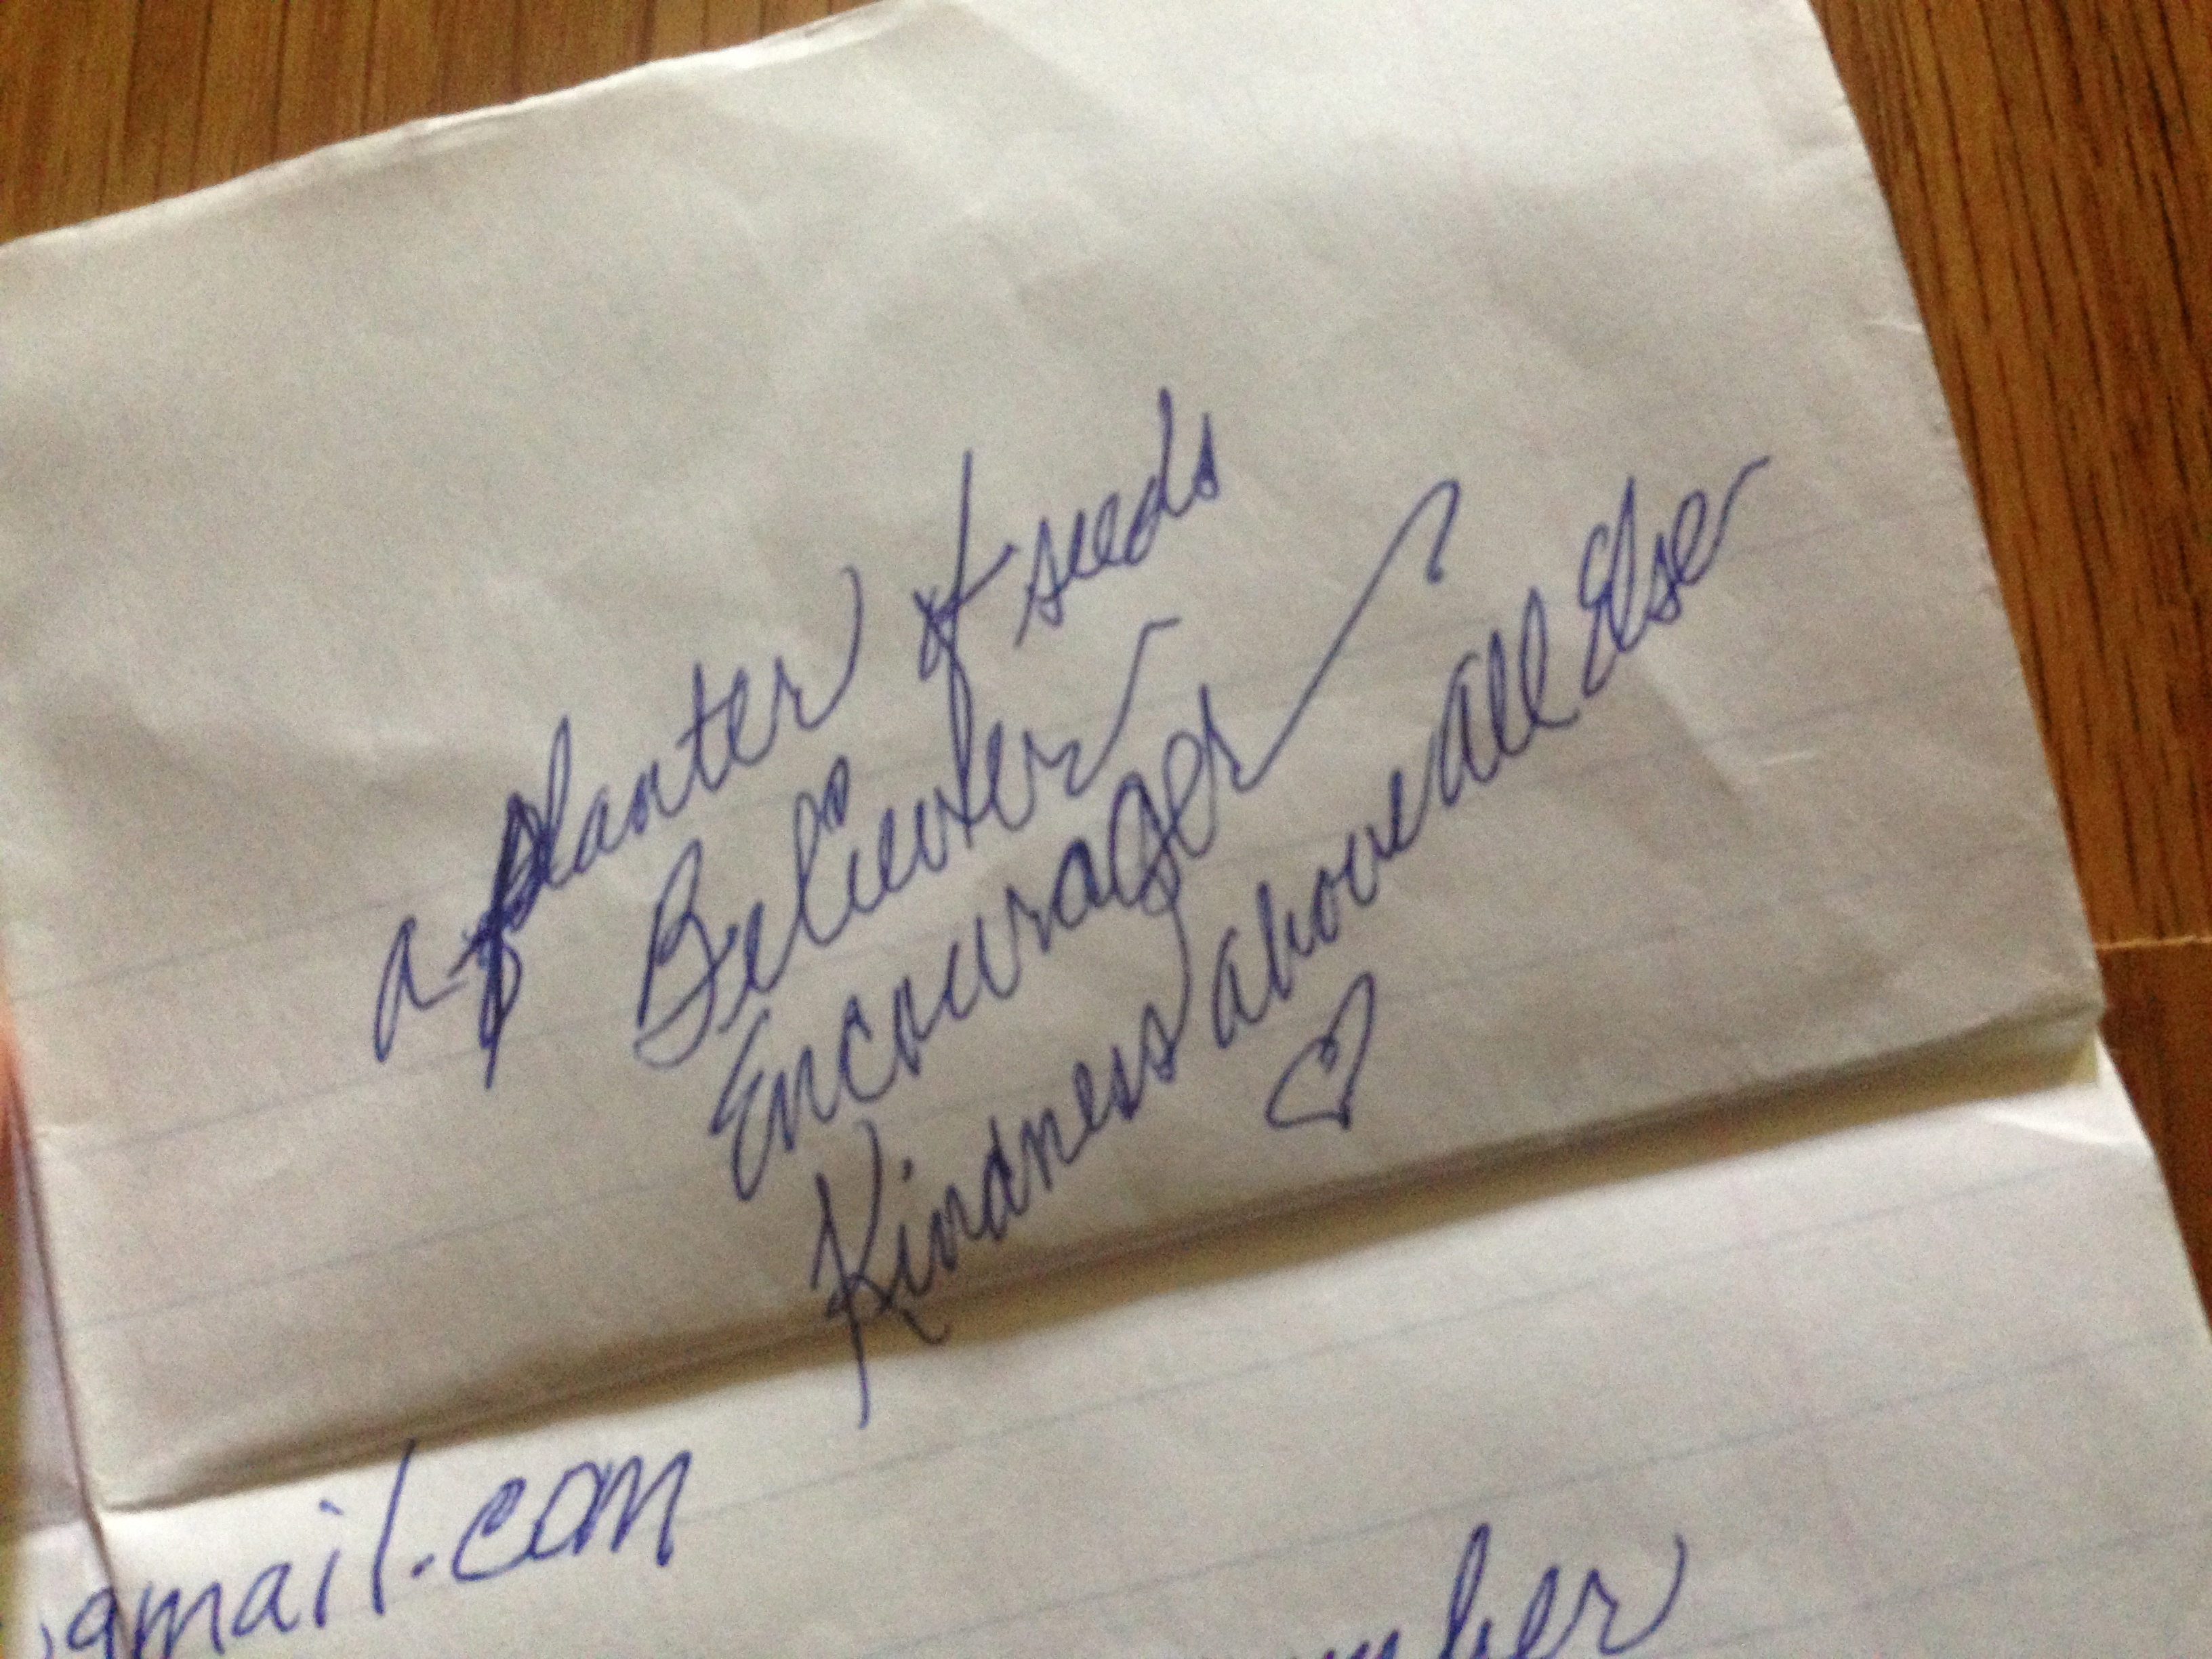 a planter of seeds
Believer
Encourager
Kindness above all Else
gmail.com